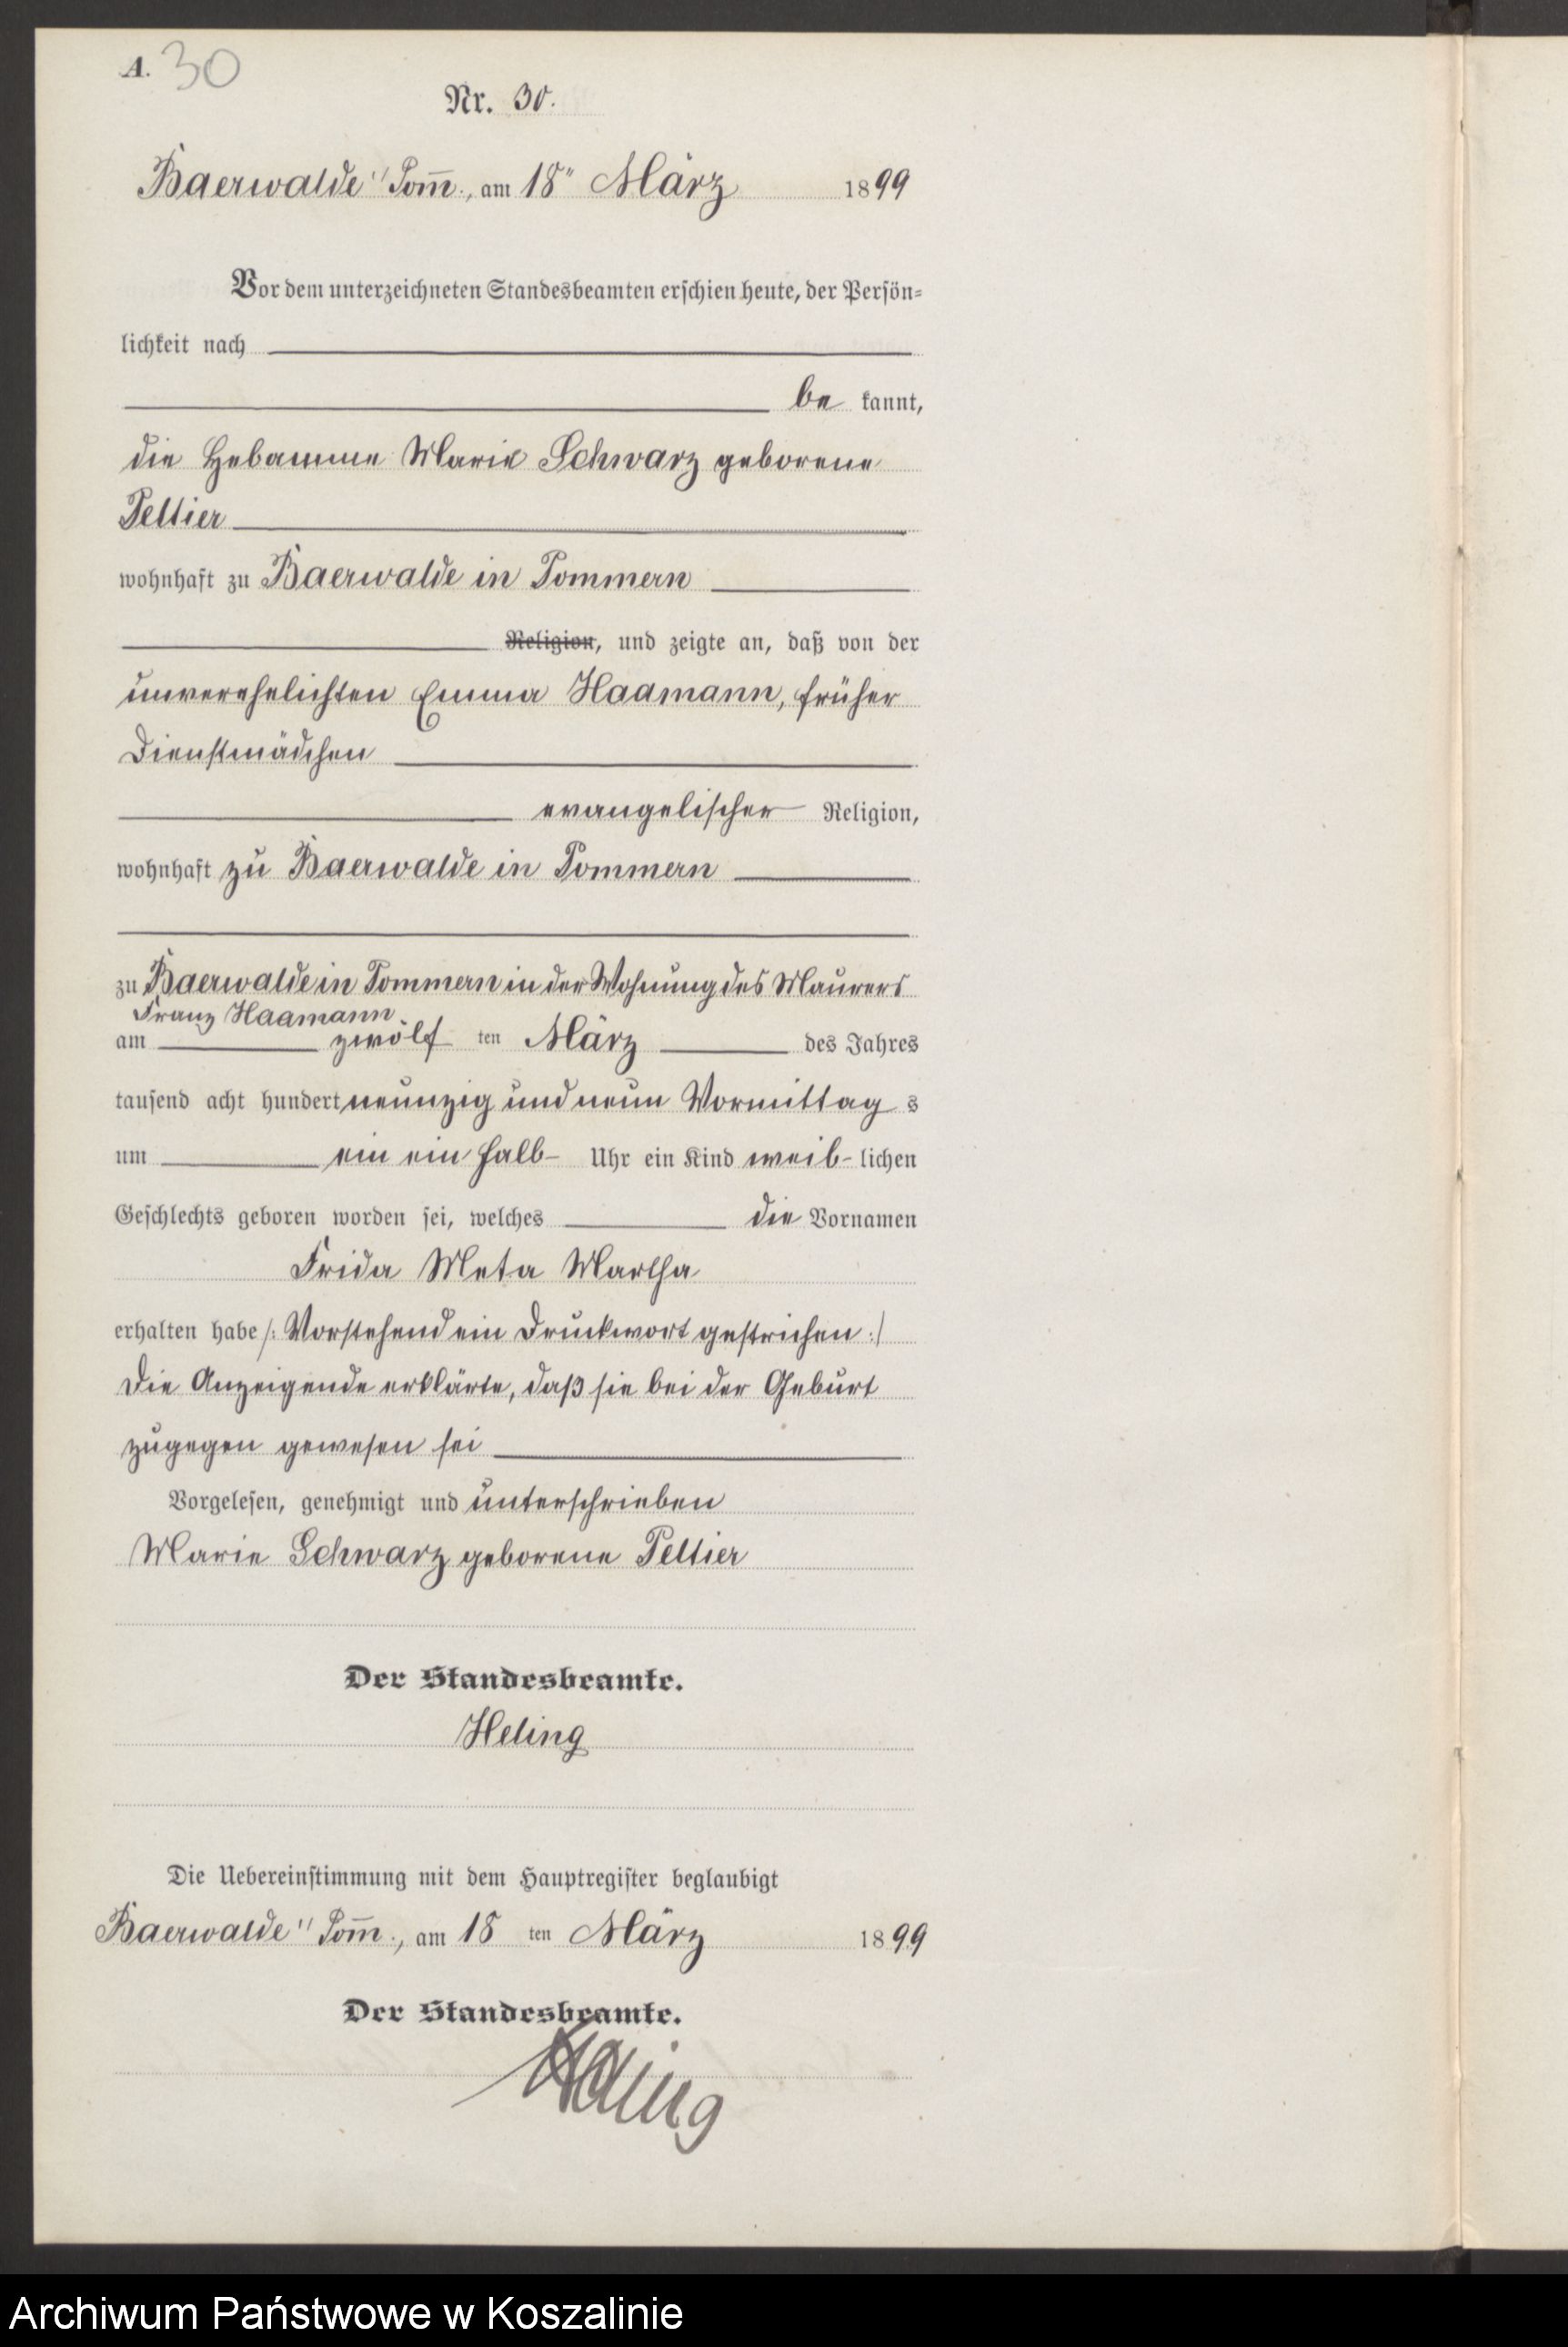 A. 30
Nr. 30.
Baerwalde i/Pom̅., am 18ten März 1899
Vor dem unterzeichneten Standesbeamten erschien heute, der Persön-
lichkeit nach
be kannt,
die Hebamme Marie Schwarz geborene
Peltier
wohnhaft zu Baerwalde in Pommern
Religion, und zeigte an, daß von der
unverehelichten Emma Haamann, früher
Dienstmädchen
evangelischer Religion,
wohnhaft zu Baerwalde in Pommern
zu Baerwalde in Pommern in der Wohnung des Maurers
Franz Haamann
am zwölf ten März des Jahres
tausend acht hundert neunzig und neun Vormittag s
um ein ein halb Uhr ein Kind weib-lichen
Geschlechts geboren worden sei, welches die Vornamen
Frida Meta Martha
erhalten habe /: Vorstehend ein Druckwort gestrichen :/
Die Anzeigende erklärte, daß sie bei der Geburt
zugegen gewesen sei
Vorgelesen, genehmigt und unterschrieben
Marie Schwarz geborene Peltier
Der Standesbeamte.
Heling
Die Uebereinstimmung mit dem Hauptregister beglaubigt
Baerwalde i/Pom̅., am 18 ten März 1899
Der Standesbeamte.
Heling
Archiwum Państwowe w Koszalinie